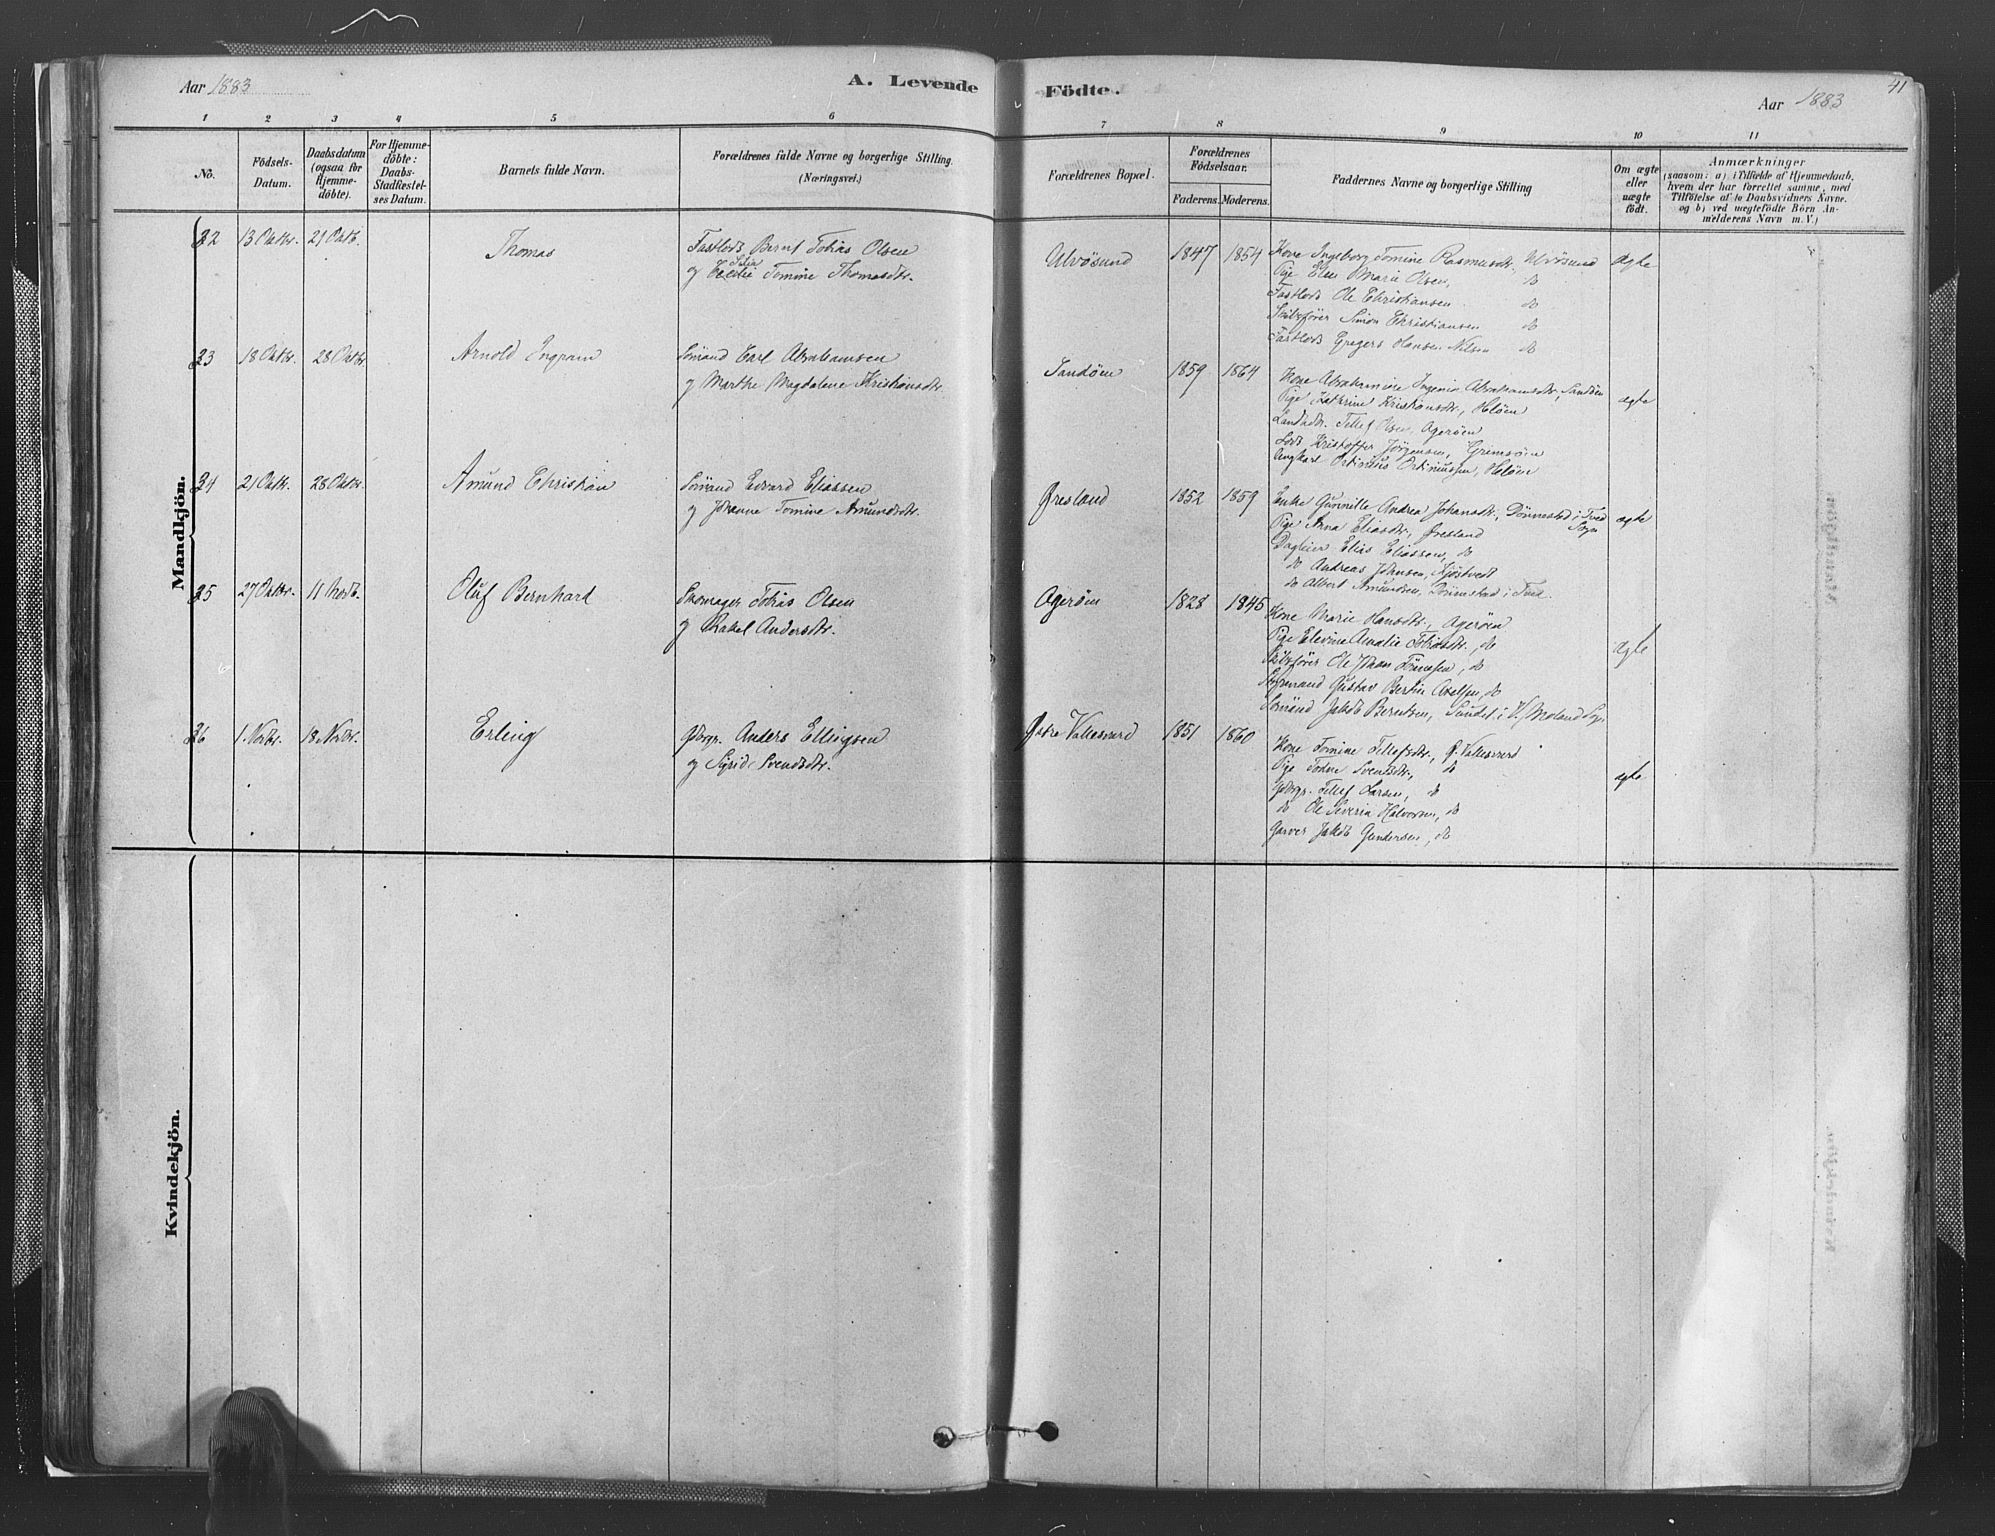 Aar 1883
A. Levende Födte.
41
Aar 1883
1 2 3 4 5 6 7 8 9 10 11
No.
Födsels-Datum.
Daabsdatum (ogsaa for Hjemme-døbte).
For Hjemme-døbte: Daabs-Stadfæstel-ses Datum.
Barnets fulde Navn.
Forældrenes fulde Navne og borgerlige Stilling. (Næringsvei.)
Forældrenes Bopæl.
Forældrenes Födselsaar.
Faderens. Moderens.
Faddernes Navne og borgerlige Stilling
Om ægte eller uægte födt.
Anmærkninger
(saasom: a) i Tilfælde af Hjemmedaab, hvem der har forrettet samme, med Tilföielse af to Daabsvidners Navne. og b) ved uægtefödte Börn An-melderens Navn m. V.)
Mandkjön.
32 13 Oktbr. 21 Oktb. Thomas
Fastlods Bernt Tobias Olsen
og Tomine Thomasdtr.
Ulvøsund 1847 1854
Kone Ingeborg Tomine Rasmusdtr., Ulvøsund ægte
Pige Else Marie Olsen, do
Fastlods Ole Christiansen do
Skibsfører Simon Christiansen do
Fastlods Gregers Hansen Nilsen do
33 18 Oktbr. 28 Oktbr. Arnold Ingram
Sømand Carl Abrahamsen
og Marthe Magdalene Kristiansdtr.
Sandøen 1859 1864
Kone Abrahamine Ingenie Abrahamsdtr., Sandøen ægte
Pige Kathrine Kristiansdtr., Heløen
Tellef Olsen, Agerøen
Lods Kristoffer Jørgensen, Grimsøen
Ungkarl Ortinius Ortiniussen, Heløen
34 21 Oktbr. 28 Oktbr. Amund Christian
Sømand Edvard Eliassen
og Johanne Tomine Amundsdtr.
Øresland 1852 1859
Enke Gunnille Andrea Johansdtr., Dønnestad i Tveid Sogn ægte
Pige Anna Eliasdtr., Øresland
Dagleier Elias Eliassen, do
do Andreas Johnsen, Kjøstvedt
do Albert Amundsen, Dønnestad i Tveid.
35 27 Oktbr. 11 Novb. Oluf Bernhard
Skomager Tobias Olsen
og Rakel Andersdtr.
Agerøen 1828 1845
Kone Marie Hansdtr., Agerøen
Pige Elevine Amalie Tobiasdtr., do ægte
Skibsfører Ole Johan Tønnesen, do
Styrmand Gustav Bertin Axelsen, do
Sømand Jakob Berntsen, Sundet i V. Moland Sogn
36 1. Novbr. 18 Novbr. Erling
Gbrgr. Anders Ellingsen
og Sigrid Svendsdtr.
Østre Vallesverd 1851 1860
Kone Tomine Tellefsdtr., Ø. Vallesverd
Pige Todne Svendsdtr., do ægte
Gbrgr. Tellef Larsen, do
do Ole Severin Halvorsen, do
Garver Jakob Gundersen, do
Kvindekjön.